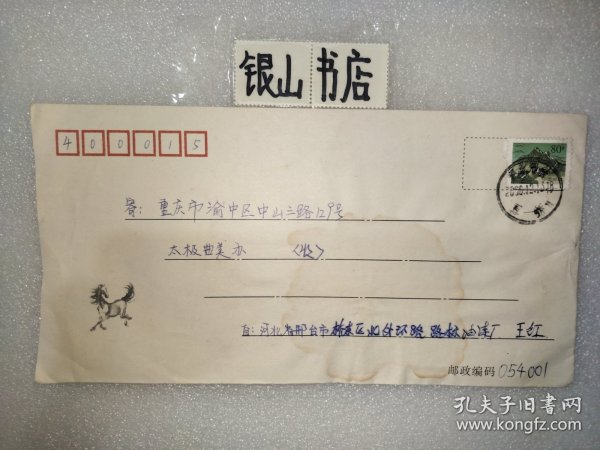 银山 书店
400015
80分
寄: 重庆市渝中区中山三路129号
太极曲美办 (收)
自: 河北省邢台市桥东区北外环路 路标油漆厂 王红
邮政编码 054001
孔夫子旧书网
www.kongfz.com